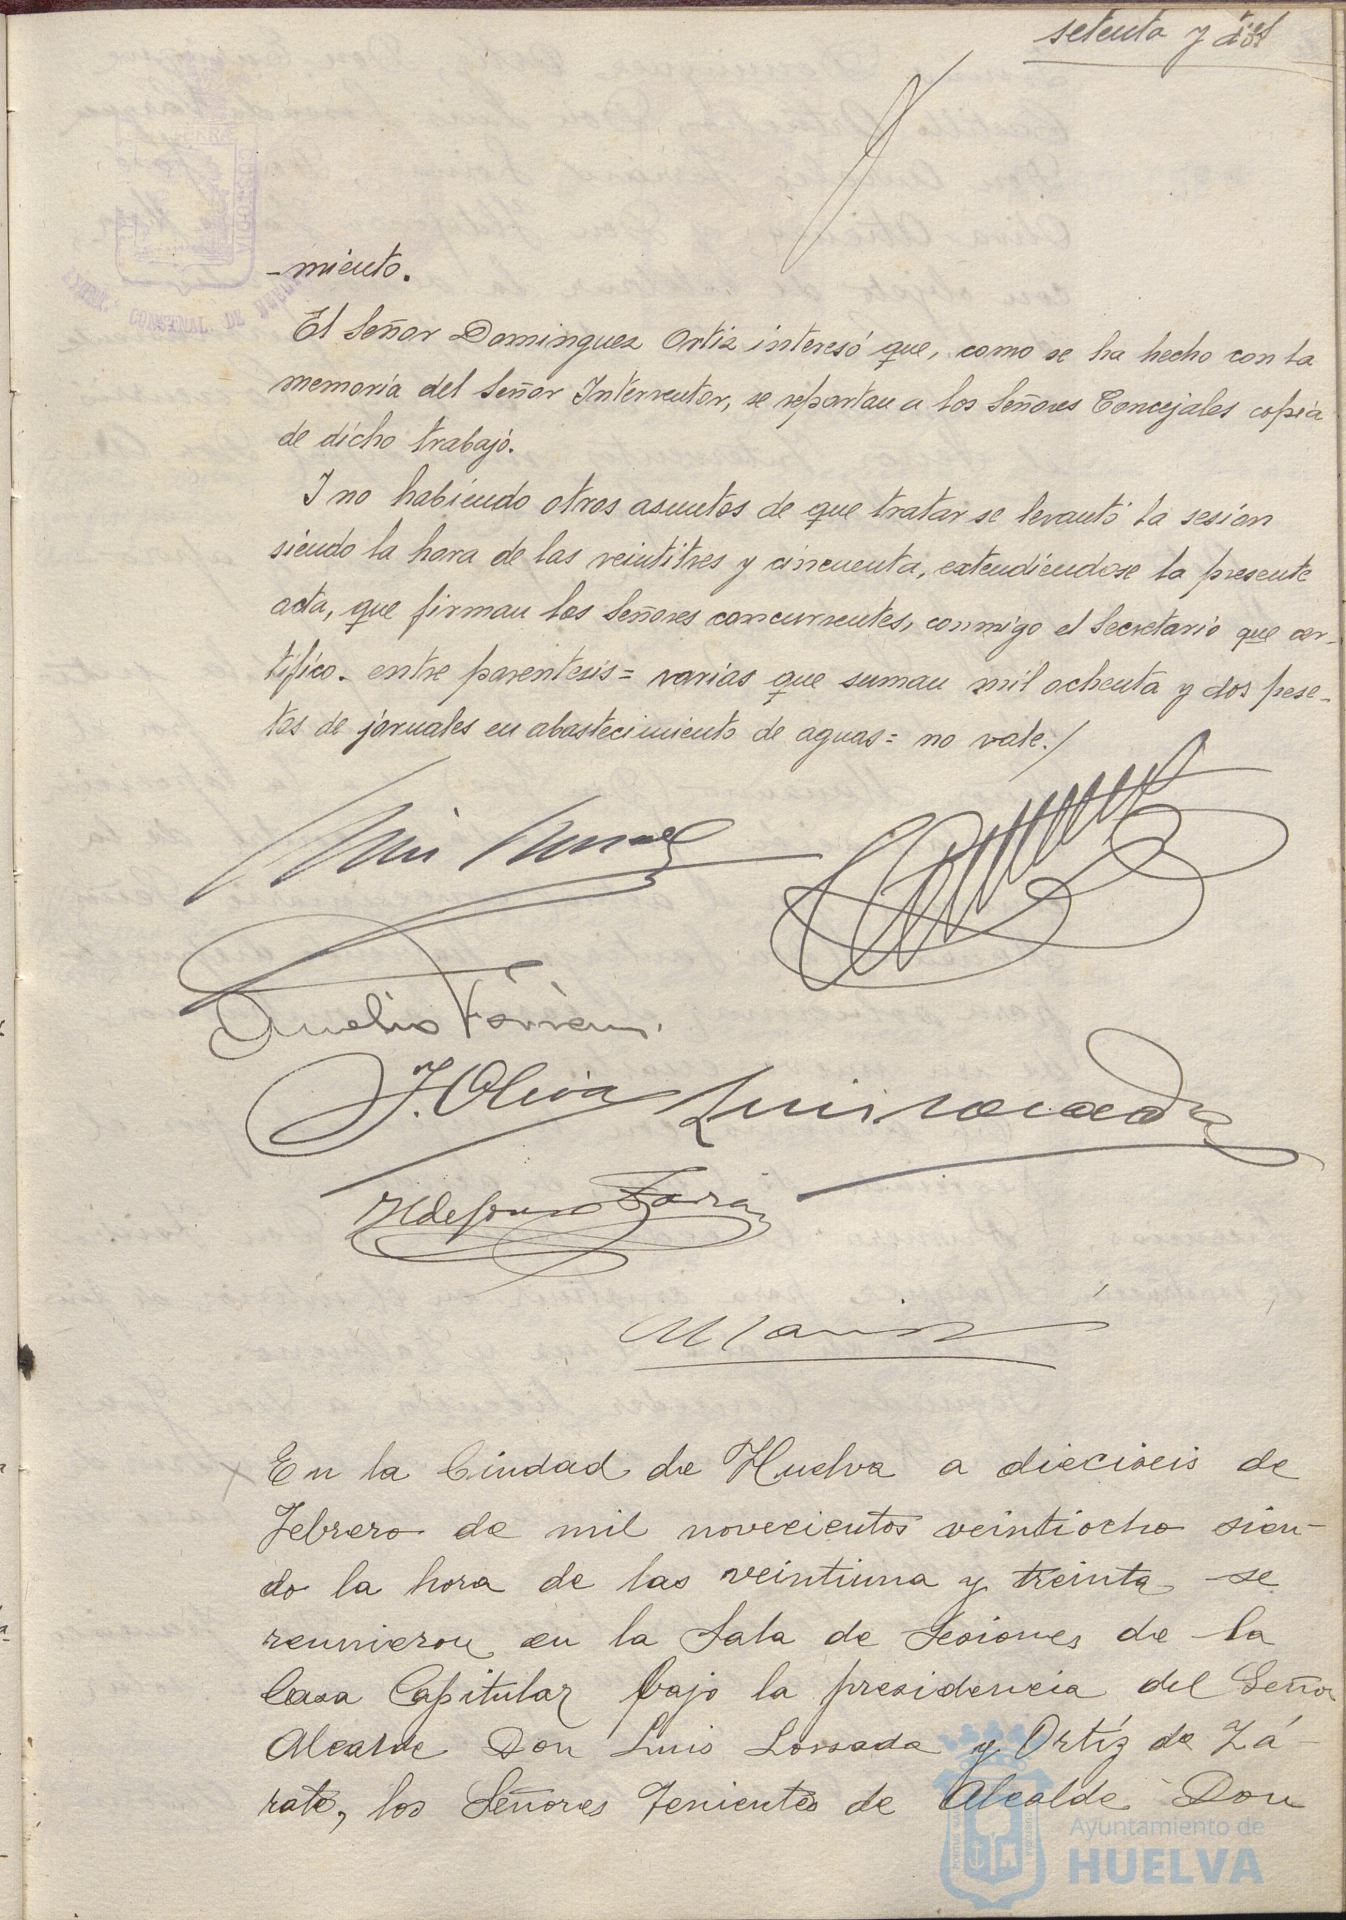 setenta y dos
-miento.
El Señor Dominguez Ortiz interesó que, como se ha hecho con la
memoria del Señor Interventor, se repartan a los Señores Concejales copia
de dicho trabajo.
Y no habiendo otros asuntos de que tratar se levantó la sesión
siendo la hora de las veintitres y cincuenta, extendiéndose la presente
acta, que firman los Señores concurrentes, conmigo el Secretario que cer-
tifico. entre parentesis = varias que suman mil ochenta y dos pese-
tas de jornales en abastecimiento de aguas = no vale./
Aurelio
J. Oliva
Ildefonso
En la Ciudad de Huelva a dieciseis de
Febrero de mil novecientos veintiocho sien-
do la hora de las veintiuna y treinta se
reunieron en la Sala de Sesiones de la
Casa Capitular bajo la presidencia del Señor
Alcalde Don Luis Lossada y Ortíz de Zá-
rate, los Señores Tenientes de Alcalde Don
Ayuntamiento de
HUELVA